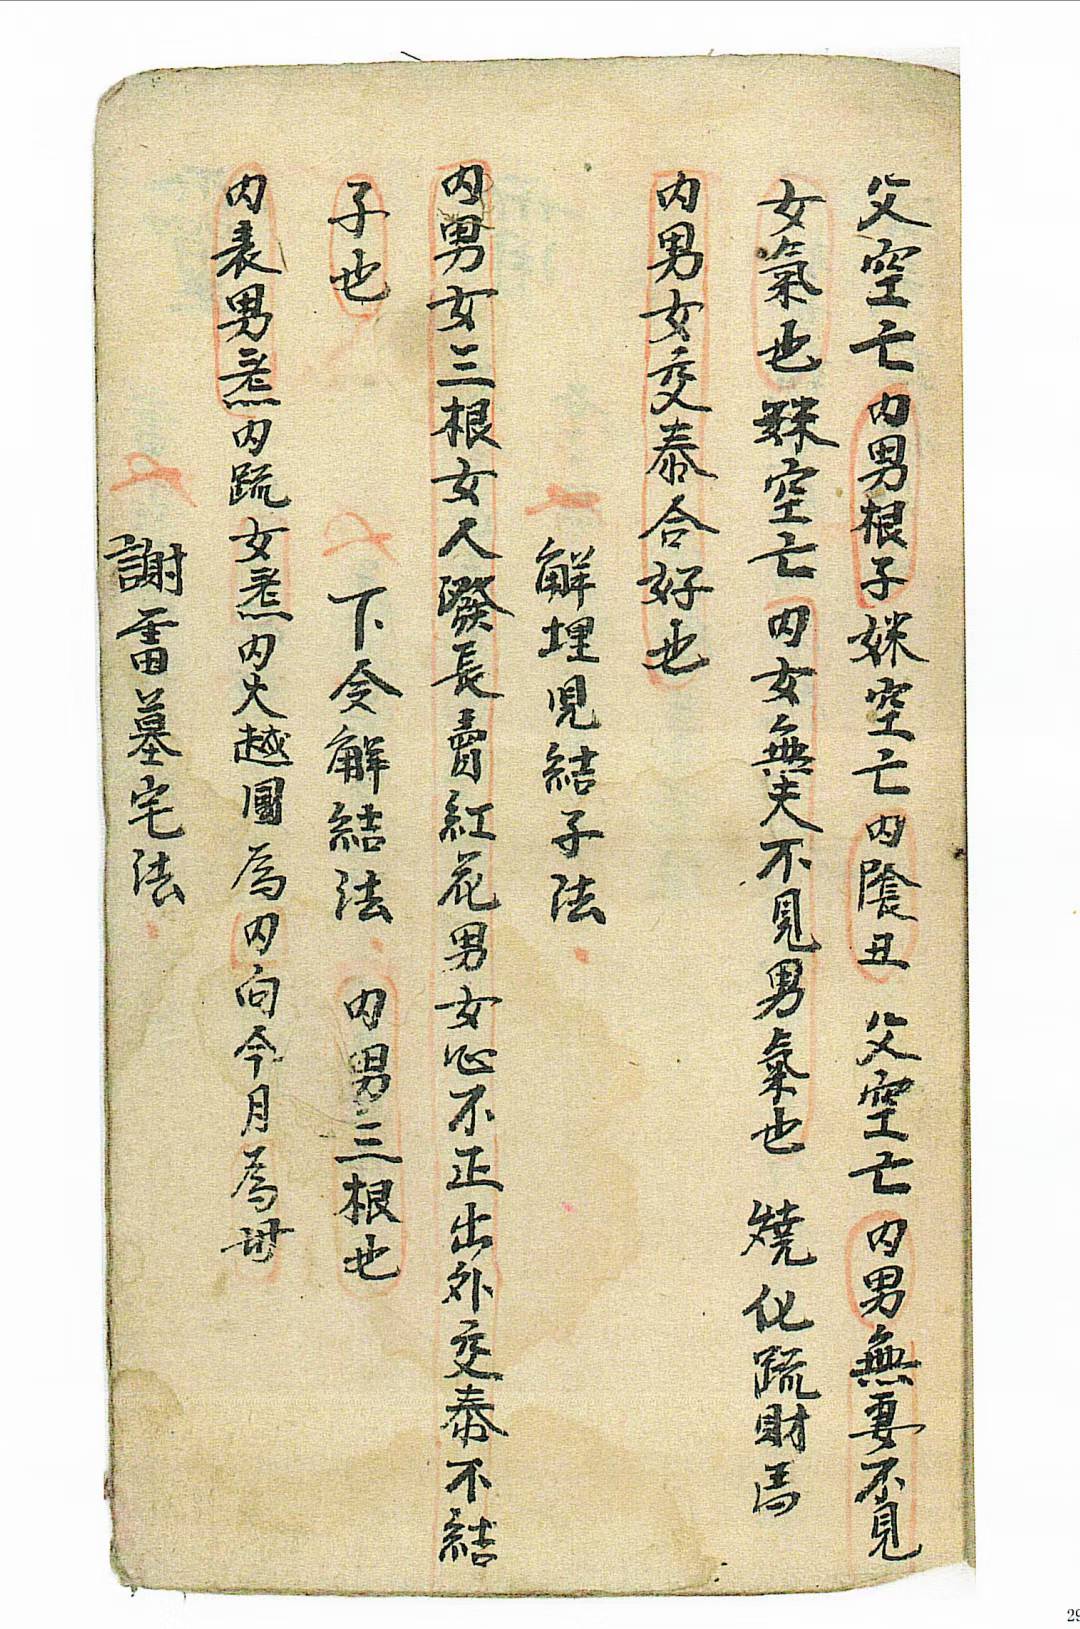 父空亡內男根子妹空亡內陰丑父空亡內男無妻不見
女氣也妹空亡內女無夫不見男氣也燒化疏財馬
內男女交泰合好也
解埋児結子法
內男女三根女人發長賣紅花男女心不正出外交泰不結
子也 下令解結法 內男三根也
內表男羔內疏女羔內火越囯為內向今月為毌
謝雷墓宅法
29